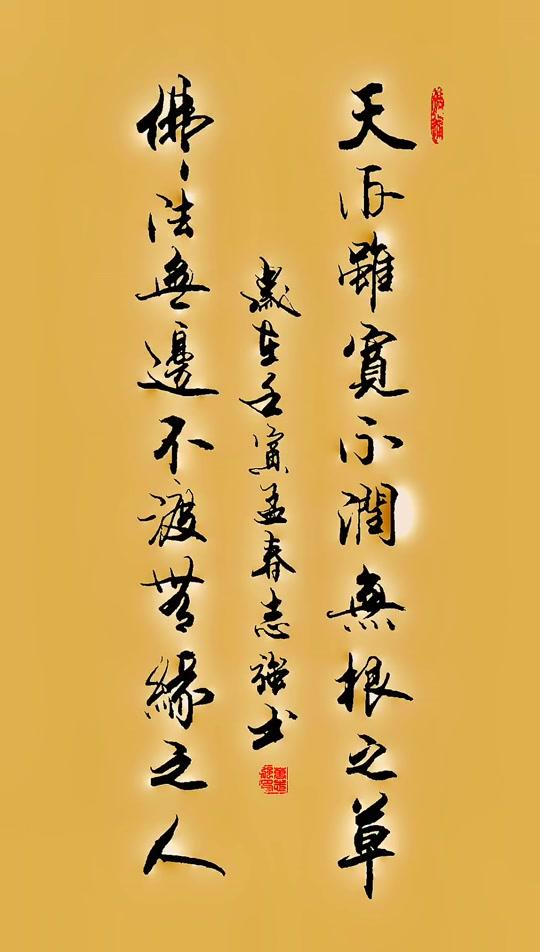 天雨雖寬不潤無根之草
歲在壬寅孟春志強书
佛法無邊不渡無緣之人